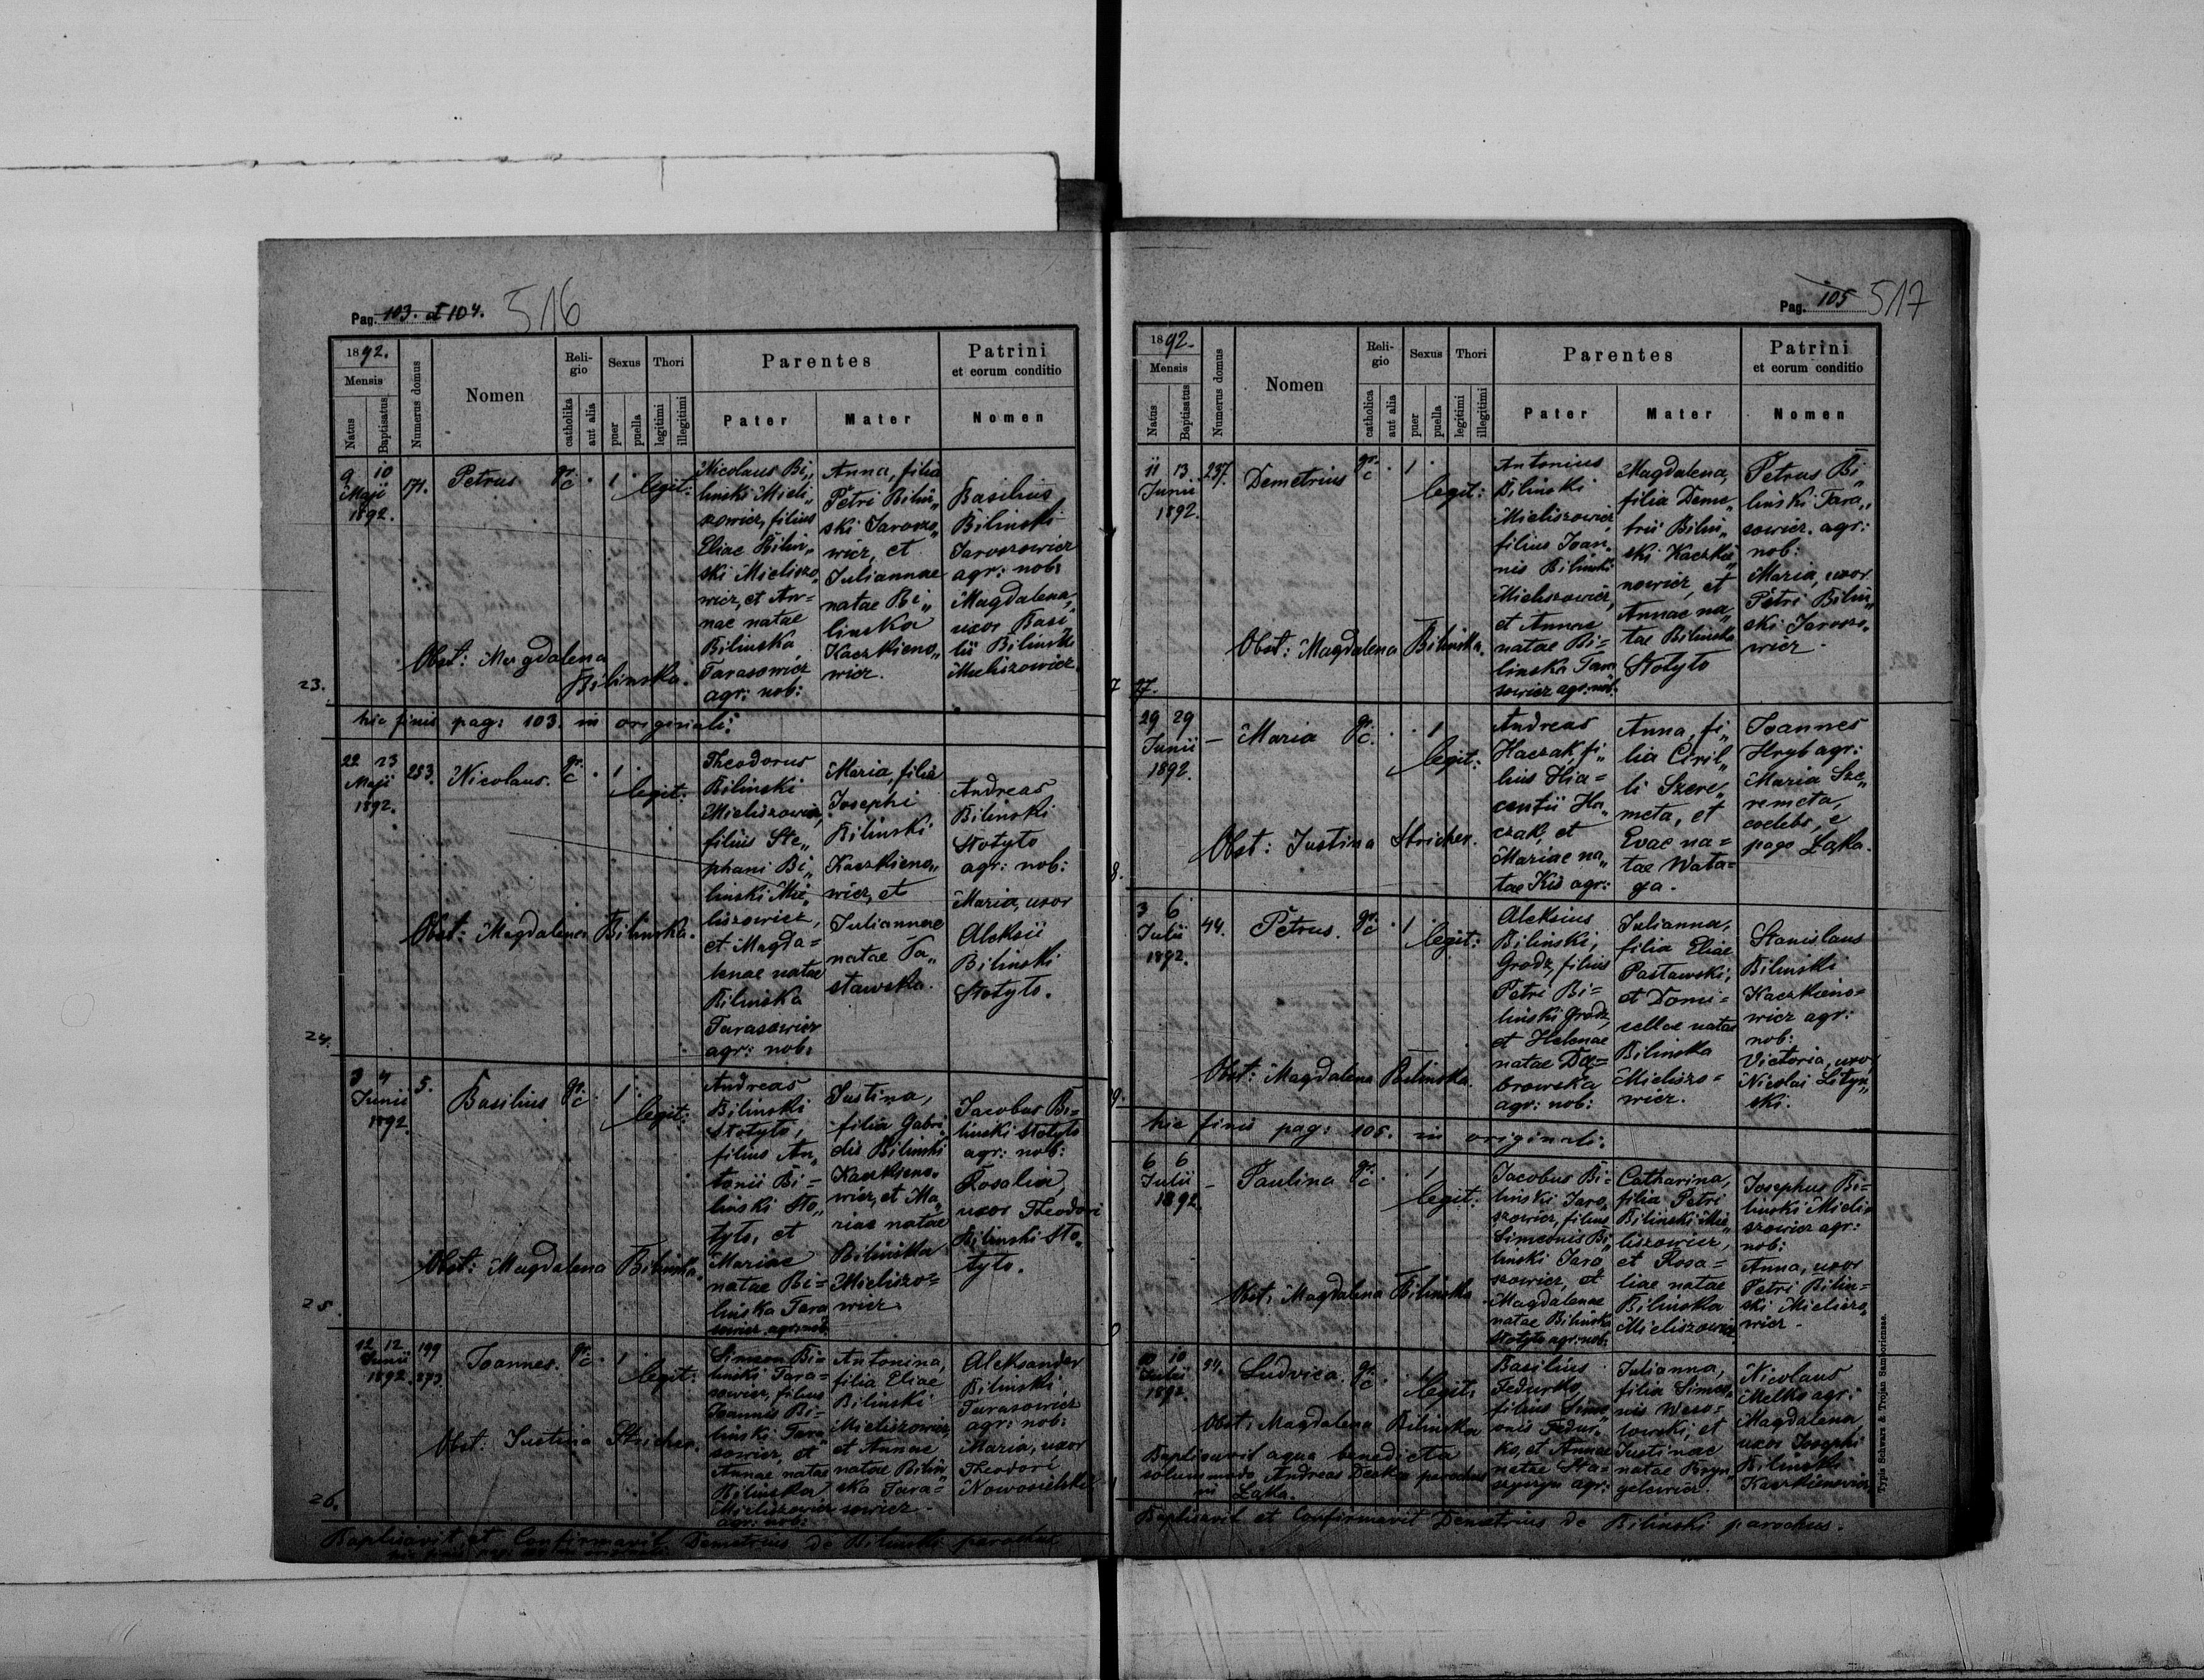 Pag. 103. et 104. 516
1892.
Mensis
Natus
Baptisatus
Numerus domus
Nomen
Reli-
gio
catholika
aut alia
Sexus
puer
puella
Thori
legitimi
illegitimi
Parentes
Pater
Mater
Patrini
et eorum conditio
Nomen
23.
9 10
Maji
1892.
171.
Petrus
gr.
c.
1
legit:
Nicolaus Bi„
linski Mieli„
szowicz, filius
Eliae Bilin„
ski Mieliszo„
wicz, et An=
nae natae
Bilinska
Tarasowicz
agr: nob:
Anna, filia
Petri Bilin„
ski Jaroszo„
wicz, et
Juliannae
natae Bi„
linska
Kaczkieno„
wicz.
Basilius
Bilinski
Jaroszowicz
agr: nob:
Magdalena,
uxor Basi„
lii Bilinski
Mieliszowicz.
Obst: Magdalena
Bilinska.
hic finis pag: 103. in originali:
24.
22 23
Maji
1892.
283.
Nicolaus.
gr.
c.
1
legit:
Theodorus
Bilinski
Mieliszowicz,
filius Ste„
phani Bi„
linski Mie„
liszowicz,
et Magda=
lenae natae
Bilinska
Tarasowicz
agr: nob:
Maria, filia
Josephi
Bilinski
Kaczkieno„
wicz, et
Juliannae
natae Pa„
stawska.
Andreas
Bilinski
Stotyto
agr: nob:
Maria, uxor
Aleksii
Bilinski
Stotyto.
Obst: Magdalena Bilinska.
25.
3 4
Junii
1892.
5.
Basilius
gr.
c.
1
legit:
Andreas
Bilinski
Stotyto,
filius An„
tonii Bi=
linski Sto„
tyto, et
Mariae
natae Bi=
linska Tara
sowicz agr: nob:
Justina,
filia Gabri„
elis Bilinski
Kaczkieno„
wicz, et Ma„
riae natae
Bilinska
Mieliszo=
wicz.
Jacobus Bi=
linski Stotyto
agr: nob:
Rosalia,
uxor Theodori
Bilinski Sto„
tyto.
Obst: Magdalena Bilinska.
26.
12 12
Junii
1892.
199
273.
Joannes.
gr.
c.
1
legit:
Simeon Bi=
linski Tara=
sowicz, filius
Joannis Bi=
linski Tara„
sowicz, et
Annae natae
Bilinska
Mieliszowicz
agr: nob:
Antonina,
filia Eliae
Bilinski
Mieliszowicz,
et Annae
natae Bilin„
ska Tara=
sowicz.
Aleksander
Bilinski
Tarasowicz
agr: nob:
Maria, uxor
Theodori
Nowosielski
Obst: Justina Stricher.
Baptisavit et Confirmavit Demetrius de Bilinski parochus
Pag. 105 517
1892.
Mensis
Natus
Baptisatus
Numerus domus
Nomen
Reli-
gio
catholica
aut alia
Sexus
puer
puella
Thori
legitimi
illegitimi
Parentes
Pater
Mater
Patrini
et eorum conditio
Nomen
27.
11 13
Junii
1892.
237.
Demetrius
gr.
c
1
legit:
Antonius
Bilinski
Mieliszowicz
filius Joan„
nis Bilinski
Mieliszowicz,
et Annae
natae Bi=
linska Tara„
sowicz agr: nob:
Magdalena,
filia Deme„
trii Bilin„
ski Kaczkie„
nowicz, et
Annae na„
tae Bilinska
Stotyto
Petrus Bi„
linski Tara„
sowicz. agr:
nob:
Maria, uxor
Petri Bilin„
ski Jaroszo„
wicz.
Obst: Magdalena Bilinska.
8.
29 29
Junii
1892.
—
Maria
gr.
c.
1
legit:
Andreas
Haczak, fi„
lius Hia=
centii Ha„
czak, et
Mariae na„
tae Kis agr:
Anna, fi„
lia Ciril„
li Szere„
meta, et
Evae na=
tae Wata=
ga.
Joannes
Hryb agr:
Maria Sze„
remeta,
coelebs, e
pago Łąka.
Obst: Justina Stricher.
9.
3 6
Julii
1892.
44.
Petrus.
gr.
c
1
legit:
Aleksius
Bilinski,
Grodz, filius
Petri Bi=
linski Grodz,
et Helenae
natae Dą=
browska
agr: nob:
Julianna,
filia Eliae
Pastawski,
et Domi=
cellae natae
Bilinska
Mieliszo=
wicz.
Stanislaus
Bilinski
Kaczkieno=
wicz agr:
nob:
Victoria, uxor
Nicolai Lityn„
ski.
Obst: Magdalena Bilinska.
hic finis pag: 105. in originali.
0
6 6
Julii
1892.
—
Paulina
gr.
c.
1
legit:
Jacobus Bi=
linski Jaro„
szowicz, filius
Simeonis Bi„
linski Jaro„
szowicz, et
Magdalenae
natae Bilinska
Stotyto agr: nob.
Catharina,
filia Petri
Bilinski Mie„
liszowicz,
et Rosa=
liae natae
Bilinska
Mieliszowicz
Josephus Bi=
linski Mieli„
szowicz agr:
nob:
Anna, uxor
Petri Bilin=
ski Mieliszo„
wicz.
Obst: Magdalena Bilinska
10 10
Julii
1892.
Ludvica.
gr.
c
1
legit:
Basilius
Fedurko,
filius Sime„
onis Fedur„
ko, et Annae
natae Sta=
szyszyn agr:
Julianna,
filia Simeo„
nis Weso=
lowski, et
Justinae
natae Bryn„
gelowicz.
Nicolaus
Melko agr:
Magdalena
uxor Josephi
Bilinski
Kaczkienowicz
Obst: Magdalena Bilinska
Baptisavit aqua benedicta
solummodo Andreas Deska parochus
in Łąka.
Baptisavit et Confirmavit Demetrius de Bilinski parochus.
Typis Schwarz & Trojan Samboriensae.